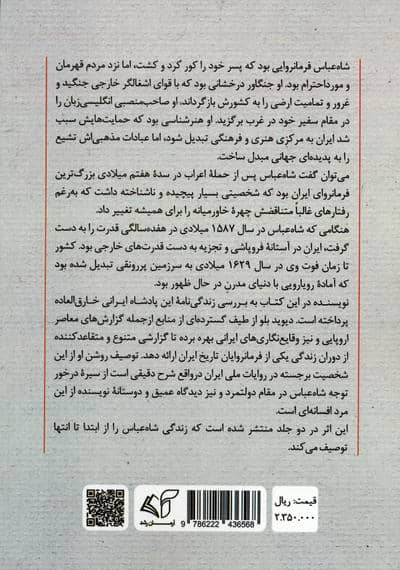 شاه‌عباس فرمانروایی بود که پسر خود را کور کرد و کشت، اما نزد مردم قهرمان
و مورداحترام بود. او جنگاور درخشانی بود که با قوای اشغالگر خارجی جنگید و
غرور و تمامیت ارضی را به کشورش بازگرداند. او صاحب‌منصبی انگلیسی‌زبان را
در مقام سفیر خود در غرب برگزید. او هنرشناسی بود که حمایت‌هایش سبب
شد ایران به مرکزی هنری و فرهنگی تبدیل شود، اما عبادات مذهبی‌اش تشیع
را به پدیده‌ای جهانی مبدل ساخت.
می‌توان گفت شاه‌عباس پس از حملهٔ اعراب در سدهٔ هفتم میلادی بزرگ‌ترین
فرمانروای ایران بود که شخصیتی بسیار پیچیده و ناشناخته داشت که به‌رغم
رفتارهای غالباً متناقضش چهرهٔ خاورمیانه را برای همیشه تغییر داد.
هنگامی که شاه‌عباس در سال ۱۵۸۷ میلادی در هفده‌سالگی قدرت را به دست
گرفت، ایران در آستانهٔ فروپاشی و تجزیه به دست قدرت‌های خارجی بود. کشور
تا زمان فوت وی در سال ۱۶۲۹ میلادی به سرزمین پررونقی تبدیل شده بود
که آمادهٔ رویارویی با دنیای مدرن در حال ظهور بود.
نویسنده در این کتاب به بررسی زندگی‌نامهٔ این پادشاه ایرانی خارق‌العاده
پرداخته است. دیوید بلو از طیف گسترده‌ای از منابع ازجمله گزارش‌های معاصر
اروپایی و نیز وقایع‌نگاری‌های ایرانی بهره برده تا گزارشی متنوع و متقاعدکننده
از دوران زندگی یکی از فرمانروایان تاریخ ایران ارائه دهد. توصیف روشن او از این
شخصیت برجسته در روایات ملی ایران درواقع شرح دقیقی است از سیرهٔ درخور
توجه شاه‌عباس در مقام دولتمرد و نیز دیدگاه عمیق و دوستانهٔ نویسنده از این
مرد افسانه‌ای است.
این اثر در دو جلد منتشر شده است که زندگی شاه‌عباس را از ابتدا تا انتها
توصیف می‌کند.
قیمت: ریال
۲.۳۵۰.۰۰۰
9 786222 436568